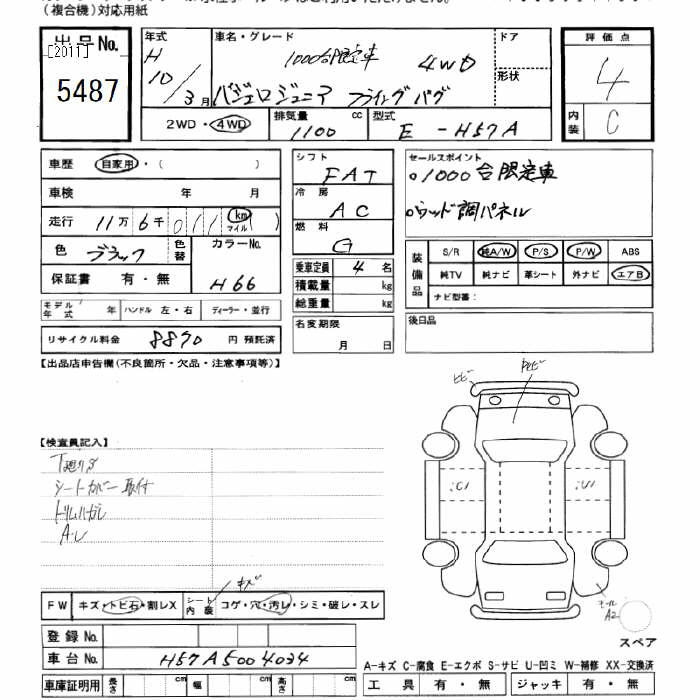 (複合機)対応用紙
出品No. [2011] 5487
年式 H 10/3月
車名・グレード 1000台限定車 4WD パジェロジュニア フライングパグ
ドア
形状
2WD・4WD
排気量 1100 cc
型式 E-H57A
評価点 4
内装 C
車歴 自家用・( )
車検 年 月
走行 11万6千011 km マイル( )
色 ブラック 色替
カラーNo. H66
保証書 有・無
モデル年式 年 ハンドル 左・右 ディーラー・並行
リサイクル料金 8890 円 預託済
シフト FAT
冷房 AC
燃料 G
乗車定員 4名
積載量 kg
総重量 kg
名変期限 月 日
セールスポイント
o1000台限定車
oウッド調パネル
装備品 S/R 純A/W P/S P/W ABS
純TV 純ナビ 革シート 外ナビ エアB
ナビ型番:
後日品
【出品店申告欄(不良箇所・欠品・注意事項等)】
トビ
【検査員記入】
シートカバー取付
FW キズ・トビ石・割レX
シート内装 コゲ・穴・汚レ・シミ・破レ・スレ
キズ
モール A2
登録No.
車台No. H57A5004034
車庫証明用 長さ cm 幅 cm 高さ cm
スペア
A-キズ C-腐食 E-エクボ S-サビ U-凹ミ W-補修 XX-交換済
工具 有・無 ジャッキ 有・無